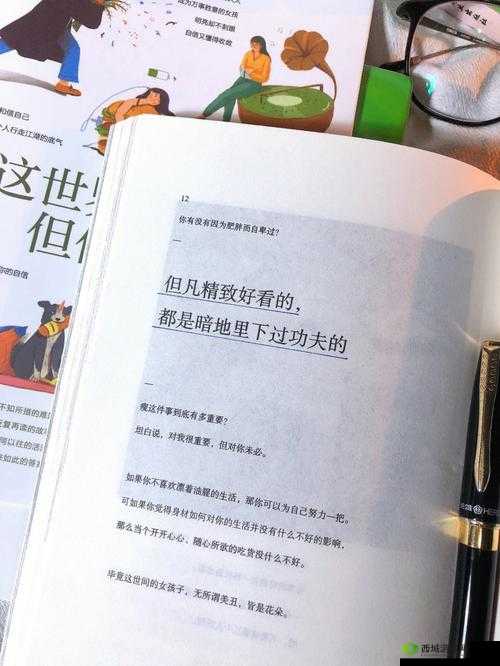 成为万事胜意的女孩
明亮却不刺眼
自信又懂得收敛
和信自己
个人行走江湖的底气
这世界
但你
你的自信
不知所措的难
反复再读的故
可以往的活
来如此的答
12
你有没有因为肥胖而自卑过?
—
但凡精致好看的,
都是暗地里下过功夫的
—
瘦这件事到底有多重要?
坦白说,对我很重要,但对你未必。
如果你不喜欢漂着油腥的生活,那你可以为自己努力一把。
可如果你觉得身材如何对你的生活并没有什么不好的影响,
那么当个开开心心、随心所欲的吃货没什么不好。
毕竟这世间的女孩子,无所谓美丑,皆是花朵。
HERO
西城